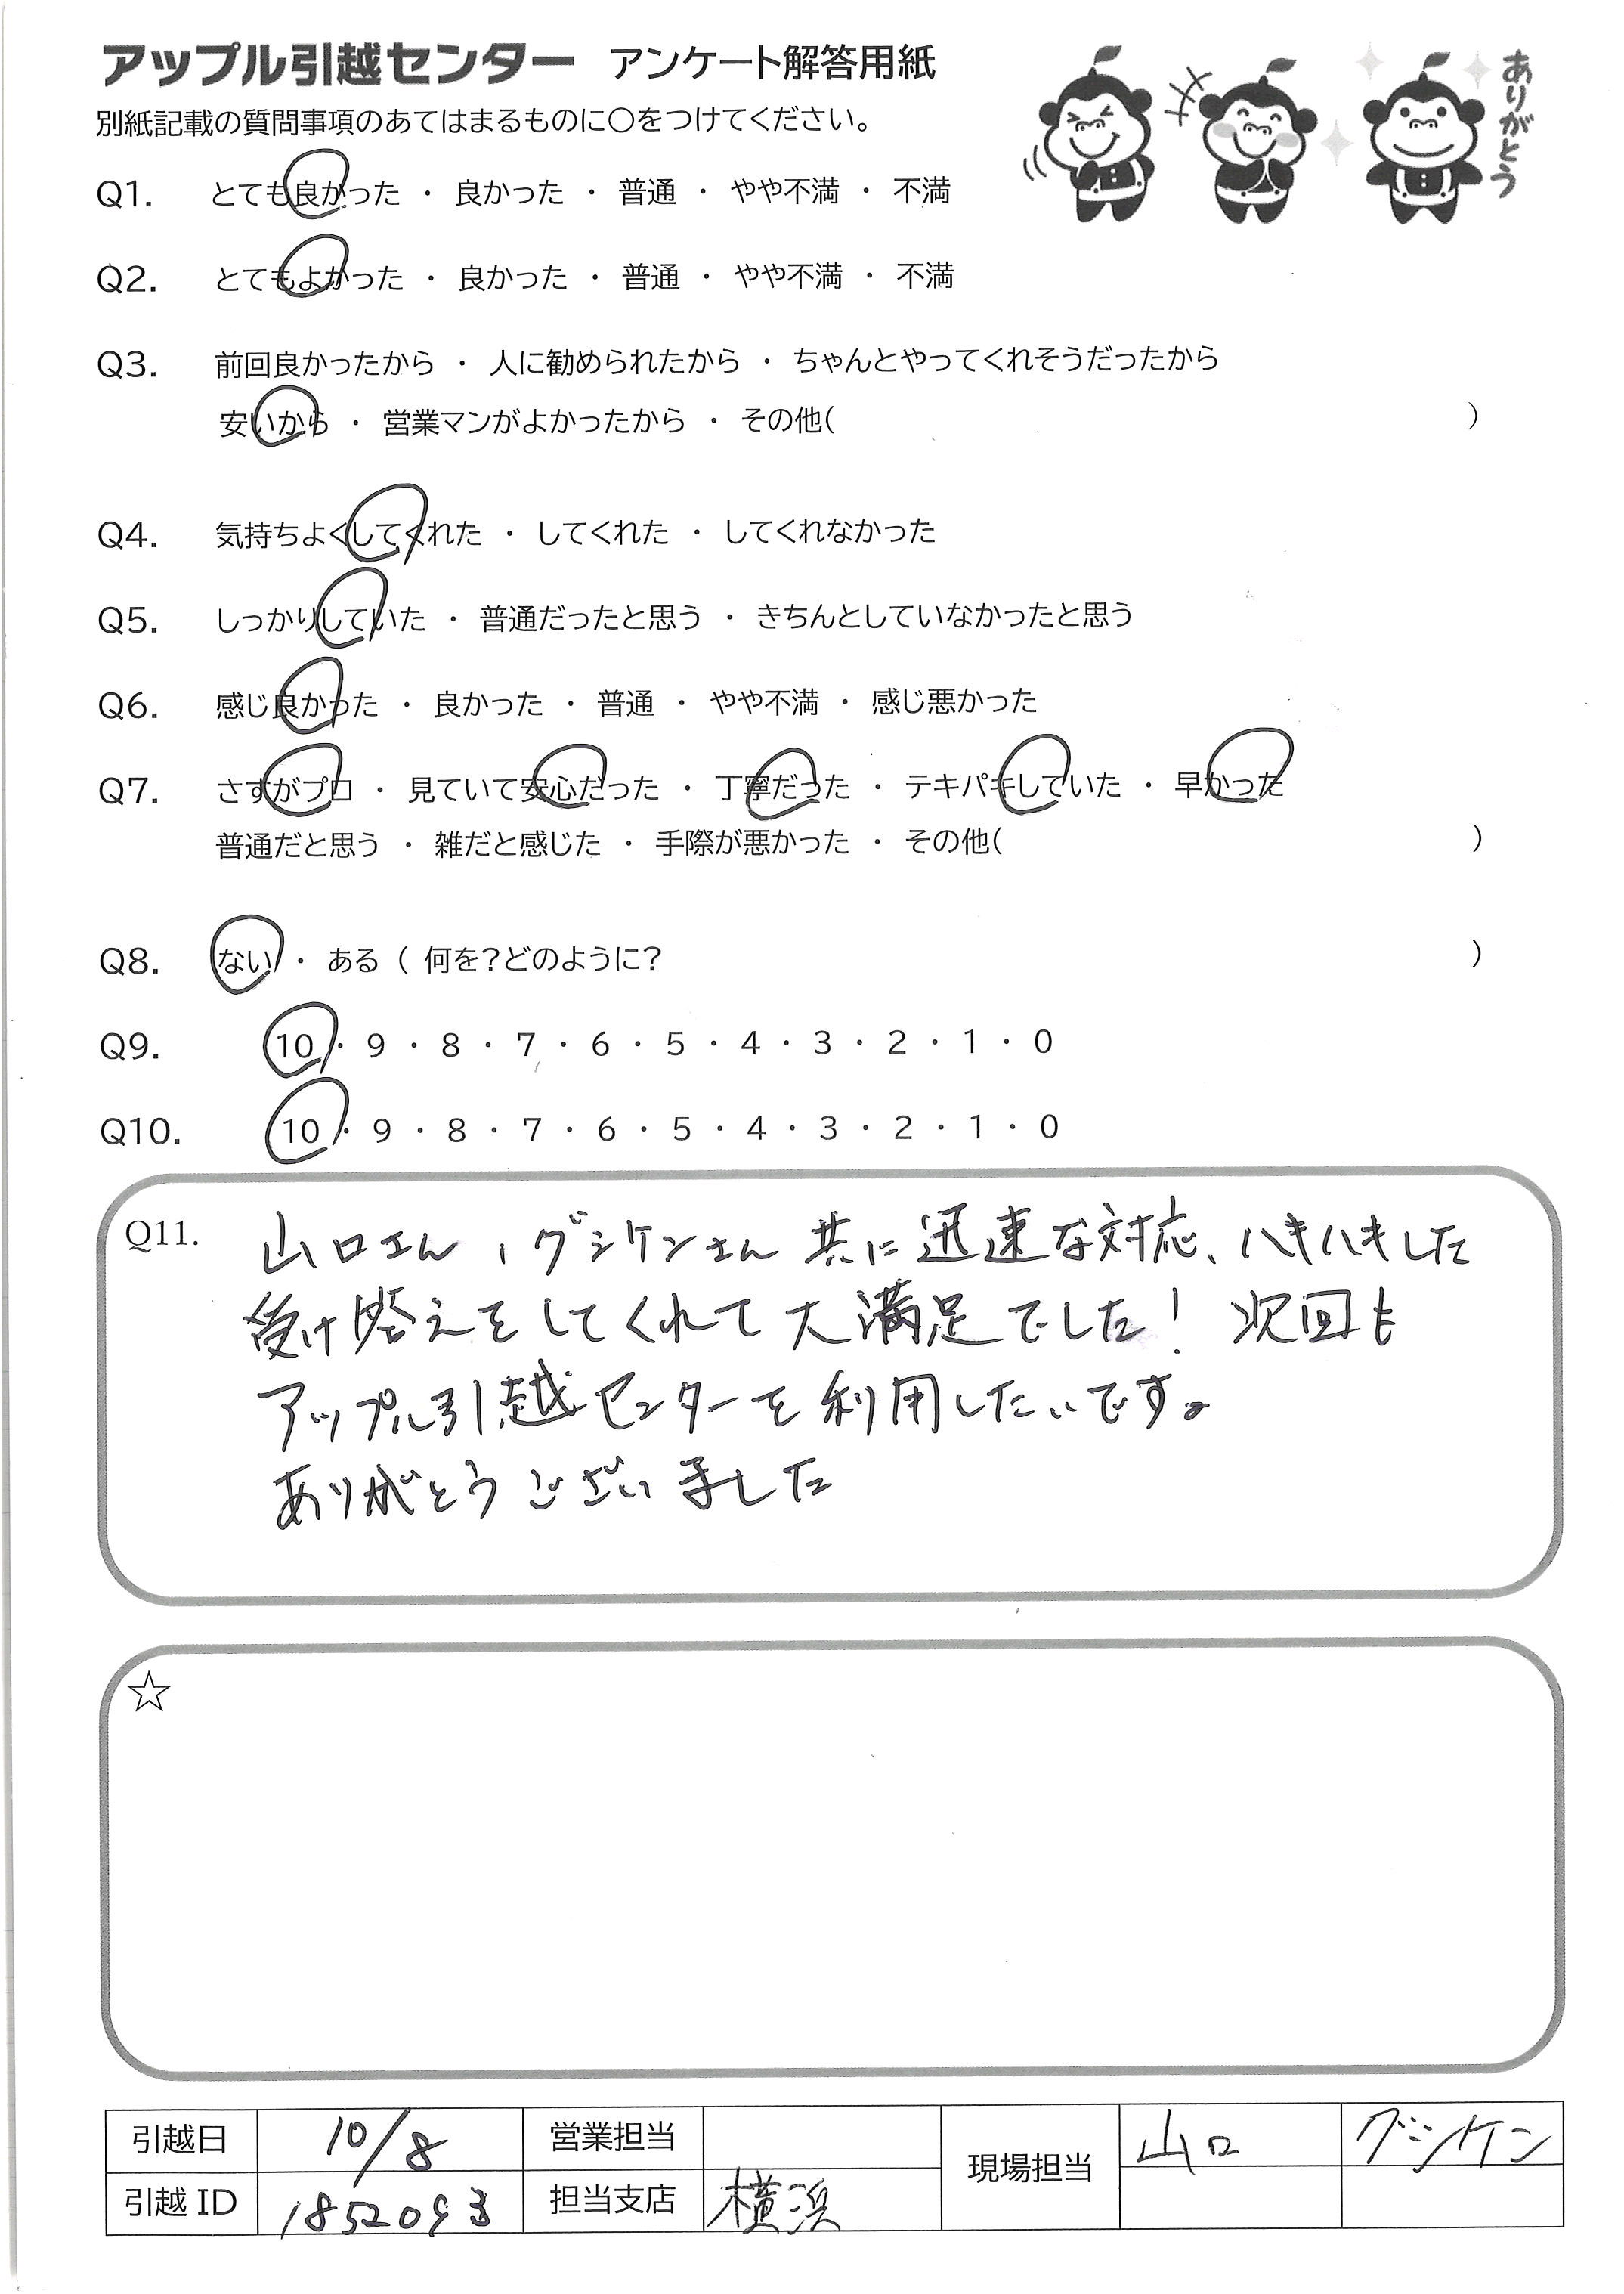 アップル引越センター アンケート解答用紙
ありがとう
別紙記載の質問事項のあてはまるものに○をつけてください。
Q1. とても良かった ・ 良かった ・ 普通 ・ やや不満 ・ 不満
Q2. とてもよかった ・ 良かった ・ 普通 ・ やや不満 ・ 不満
Q3. 前回良かったから ・ 人に勧められたから ・ ちゃんとやってくれそうだったから
安いから ・ 営業マンがよかったから ・ その他( )
Q4. 気持ちよくしてくれた ・ してくれた ・ してくれなかった
Q5. しっかりしていた ・ 普通だったと思う ・ きちんとしていなかったと思う
Q6. 感じ良かった ・ 良かった ・ 普通 ・ やや不満 ・ 感じ悪かった
Q7. さすがプロ ・ 見ていて安心だった ・ 丁寧だった ・ テキパキしていた ・ 早かった
普通だと思う ・ 雑だと感じた ・ 手際が悪かった ・ その他( )
Q8. ない ・ ある ( 何を?どのように? )
Q9. 10 ・ 9 ・ 8 ・ 7 ・ 6 ・ 5 ・ 4 ・ 3 ・ 2 ・ 1 ・ 0
Q10. 10 ・ 9 ・ 8 ・ 7 ・ 6 ・ 5 ・ 4 ・ 3 ・ 2 ・ 1 ・ 0
Q11. 山口さん、グシケンさん 共に迅速な対応、ハキハキした
受け答えをしてくれて大満足でした! 次回も
アップル引越センターを利用したいです。
ありがとうございました
☆
引越日 10/8 営業担当 現場担当 山口 グシケン
引越ID 1852093 担当支店 横浜